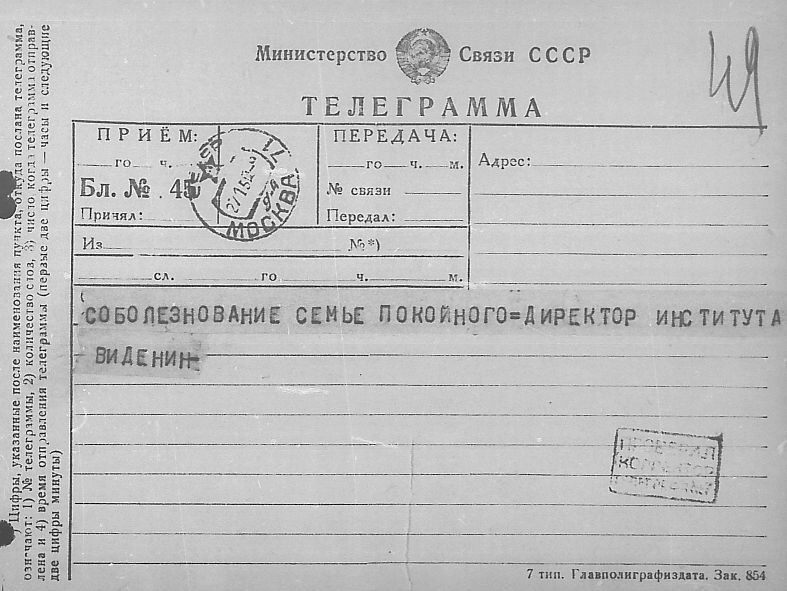 49
Министерство Связи СССР
ТЕЛЕГРАММА
ПРИЁМ:
го ч. м.
Бл. № 45
Принял:
МОСКВА
ПЕРЕДАЧА:
го ч. м.
№ связи
Передал:
Адрес:
Из № *)
сл. го ч. м.
СОБОЛЕЗНОВАНИЕ СЕМЬЕ ПОКОЙНОГО=ДИРЕКТОР ИНСТИТУТА
ВИДЕНИН-
ПРОВЕРИЛ
7 тип. Главполиграфиздата. Зак. 854
*) Цифры, указанные после наименования пункта, откуда послана телеграмма,
означают: 1) № телеграммы, 2) количество слов, 3) число, когда телеграмма отправ-
лена и 4) время отправления телеграммы (первые две цифры — часы и следующие
две цифры минуты)